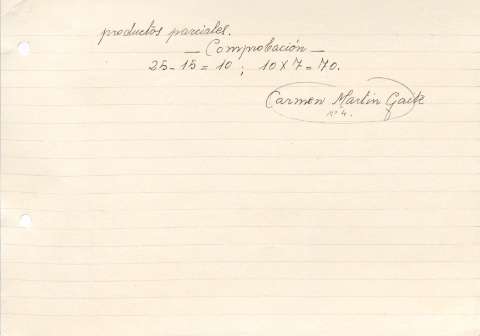 productos parciales.
— Comprobación —
25 - 15 = 10 ; 10 x 7 = 70.
Carmen Martin Gaite
nº 4.